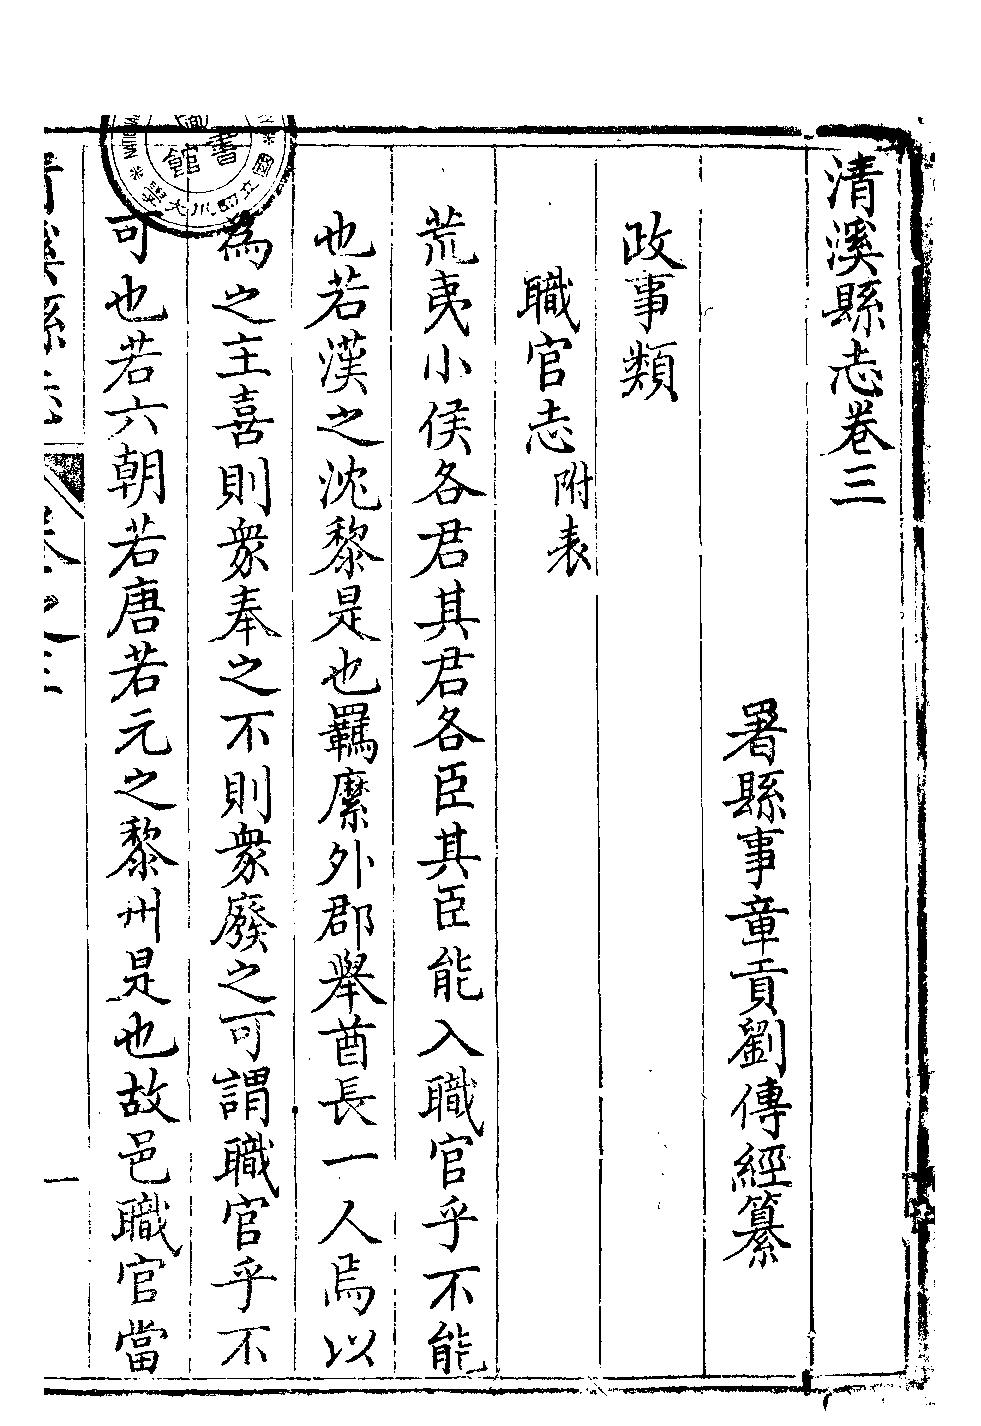 清溪縣志卷三
署縣事章貢劉傳經纂
政事類
職官志附表
荒夷小侯各君其君各臣其臣能入職官乎不能
也若漢之沈黎是也羈縻外郡舉酋長一人焉以
為之主喜則衆奉之不則衆廢之可謂職官乎不
可也若六朝若唐若元之黎州是也故邑職官當
清溪縣志
卷之三
一
國立四川大學
書館